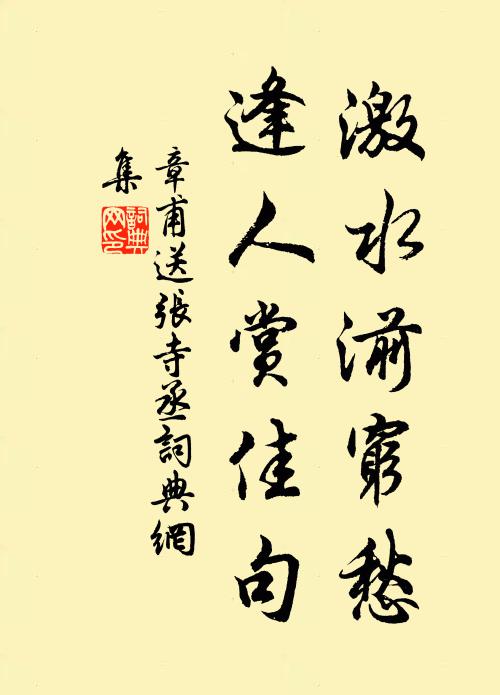 激水湔窮愁
逢人賞佳句
章甫送張寺丞詞典網
集
詞典網印